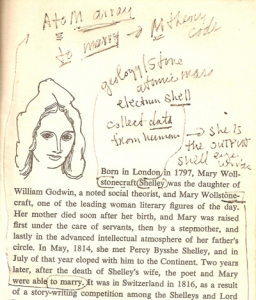 Atom array
to marry → M. theory
code
geology / stone
atomic mass
electron shell
collect data
from human → she is
the OUTPUT
shell
Born in London, in 1797, Mary Woll-
stonecraft (Shelley) was the daughter of
William Godwin, a noted social theorist, and Mary Wollstone-
craft, one of the leading woman literary figures of the day.
Her mother died soon after her birth, and Mary was raised
first under the care of servants, then by a stepmother, and
lastly in the advanced intellectual atmosphere of her father's
circle. In May, 1814, she met Percy Bysshe Shelley, and in
July of that year eloped with him to the Continent. Two years
later, after the death of Shelley's wife, the poet and Mary
were able to marry. It was in Switzerland in 1816, as a result
of a story-writing competition among the Shelleys and Lord